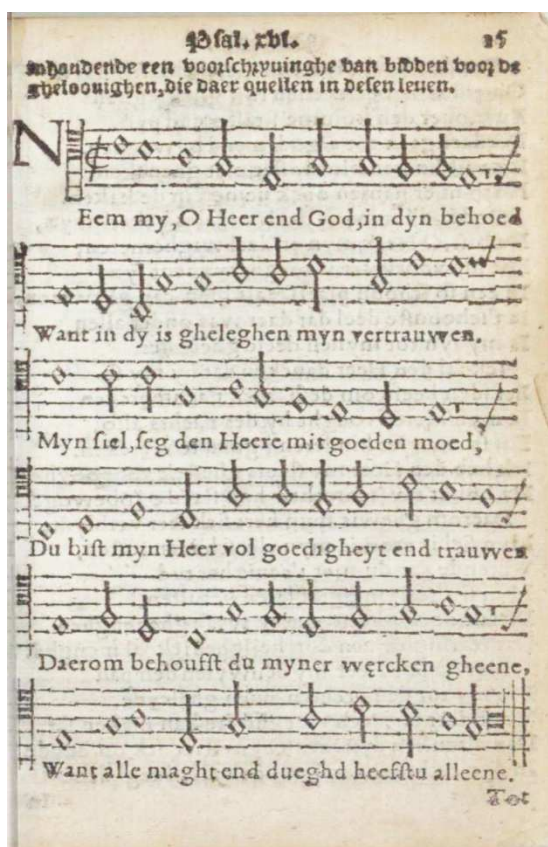 Psal. xvi. 25
Inhoudende een voorschryuinghe van bidden voor de
gheloouighen, die daer quellen in desen leuen.
NEem my, O Heer end God, in dyn behoed
Want in dy is gheleghen myn vertrauwen.
Myn siel, seg den Heere mit goeden moed,
Du bist myn Heer vol goedigheyt end trauwen
Daerom behoufst du myner wercken gheene,
Want alle maght end dueghd heefstu alleene.
Tot